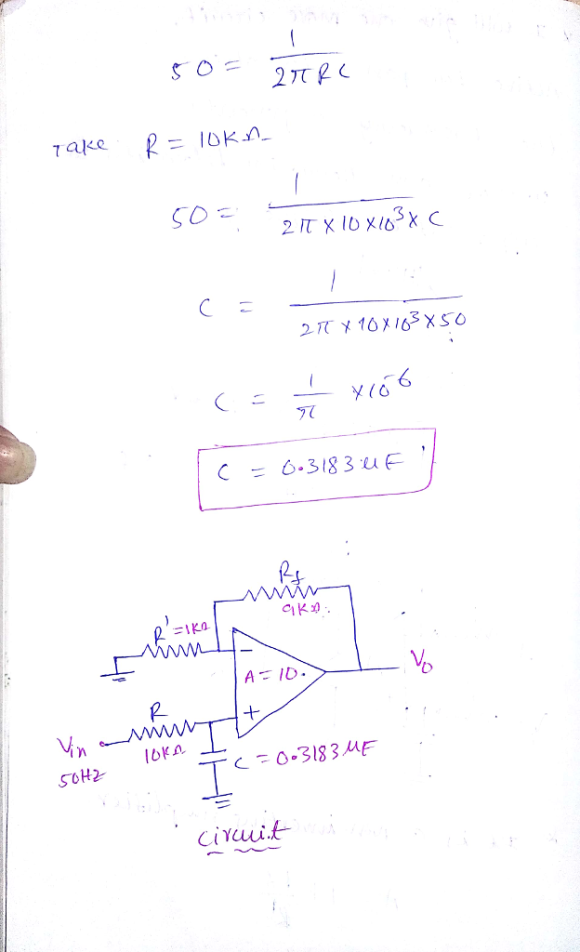 50 = 1 / 2π R C
Take R = 10KΩ
50 = 1 / 2π × 10 × 10³ × C
C = 1 / 2π × 10 × 10³ × 50
C = 1 / π × 10⁻⁶
C = 0.3183 uF
Rf
9KΩ
R' = 1KΩ
-
A = 10.
Vo
R
+
Vin
10KΩ
C = 0.3183 MF
50HZ
circuit